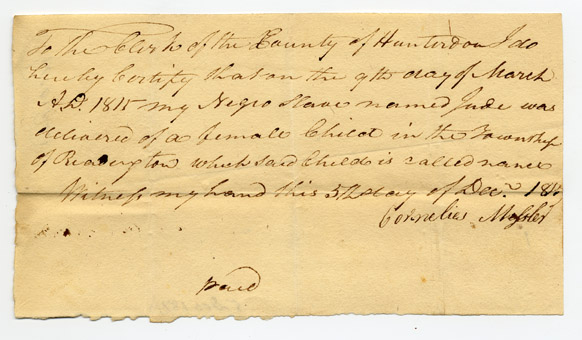 To the Clerk of the County of Hunterdon I do
hereby Certify that on the 9th day of March
A.D. 1815 my Negro Slave named Jude was
delivered of a female Child in the Township
of Readington which said Child is called nance
Witness my hand this 5th day of Decr 1815
Cornelius Messler
paid